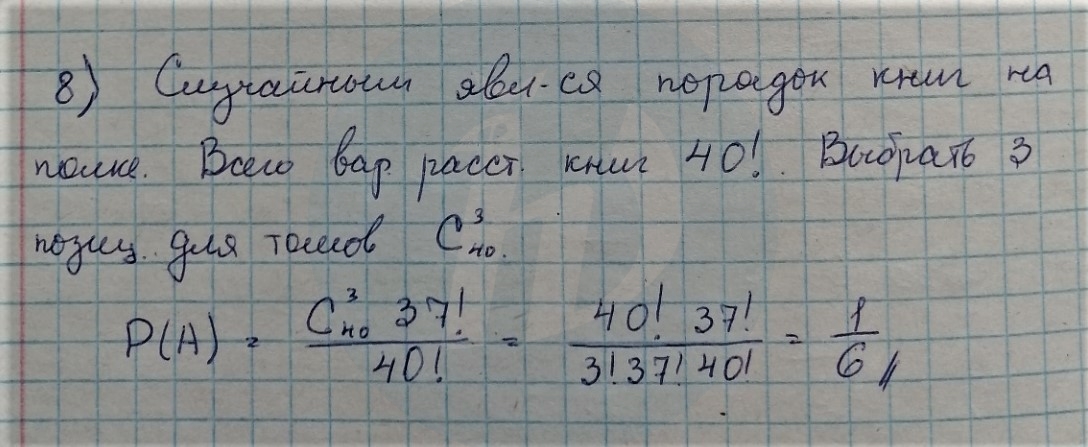 8) Случайным явл-ся порядок книг на
полке. Всего вар. расст. книг 40!. Выбрать 3
позиц. для томов C³₄₀.
P(A) = (C³₄₀ 37!)/(40!) = (40! 37!)/(3! 37! 40!) = 1/6 //